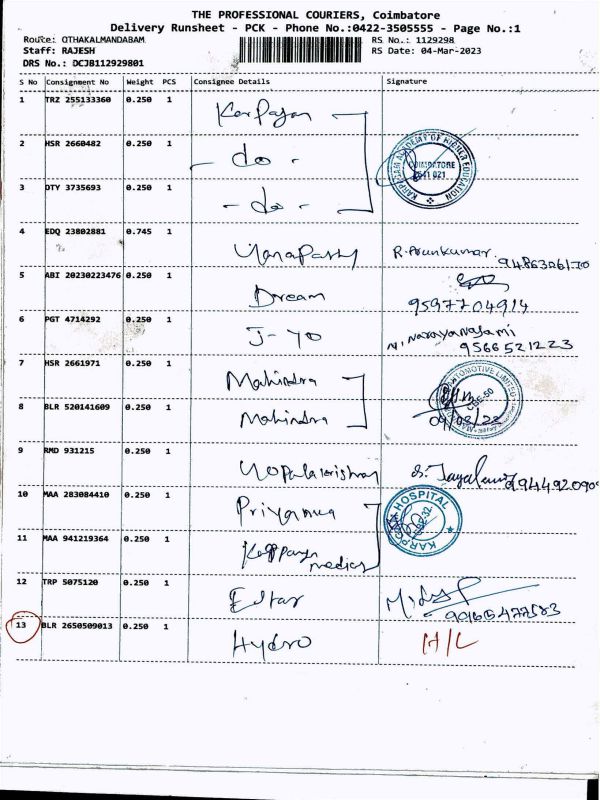 THE PROFESSIONAL COURIERS, Coimbatore
Delivery Runsheet - PCK - Phone No.:0422-3505555 - Page No.:1
Route: OTHAKALMANDABAM RS No.: 1129298
Staff: RAJESH RS Date: 04-Mar-2023
DRS No.: DCJB112929801
S No Consignment No Weight PCS Consignee Details Signature
1 TRZ 255133360 0.250 1 Karpagam
2 HSR 2660482 0.250 1 - do -
KARPAGAM ACADEMY OF HIGHER EDUCATION COIMBATORE 641 021
3 DTY 3735693 0.250 1 - do -
4 EDQ 23802881 0.745 1 R. Arunkumar
5 ABI 20230223476 0.250 1 Dream 9597704914
6 PGT 4714292 0.250 1 J-yo
9566521223
7 HSR 2661971 0.250 1 Mahindra
AUTOMOTIVE LIMITED
8 BLR 520141609 0.250 1 Mahindra
9 RMD 931215 0.250 1 Gopalakrishnan
10 MAA 283084410 0.250 1 Priyanka
KARPAGAM HOSPITAL
11 MAA 941219364 0.250 1
12 TRP 5075120 0.250 1
13 BLR 2650509013 0.250 1 Hydro H/L